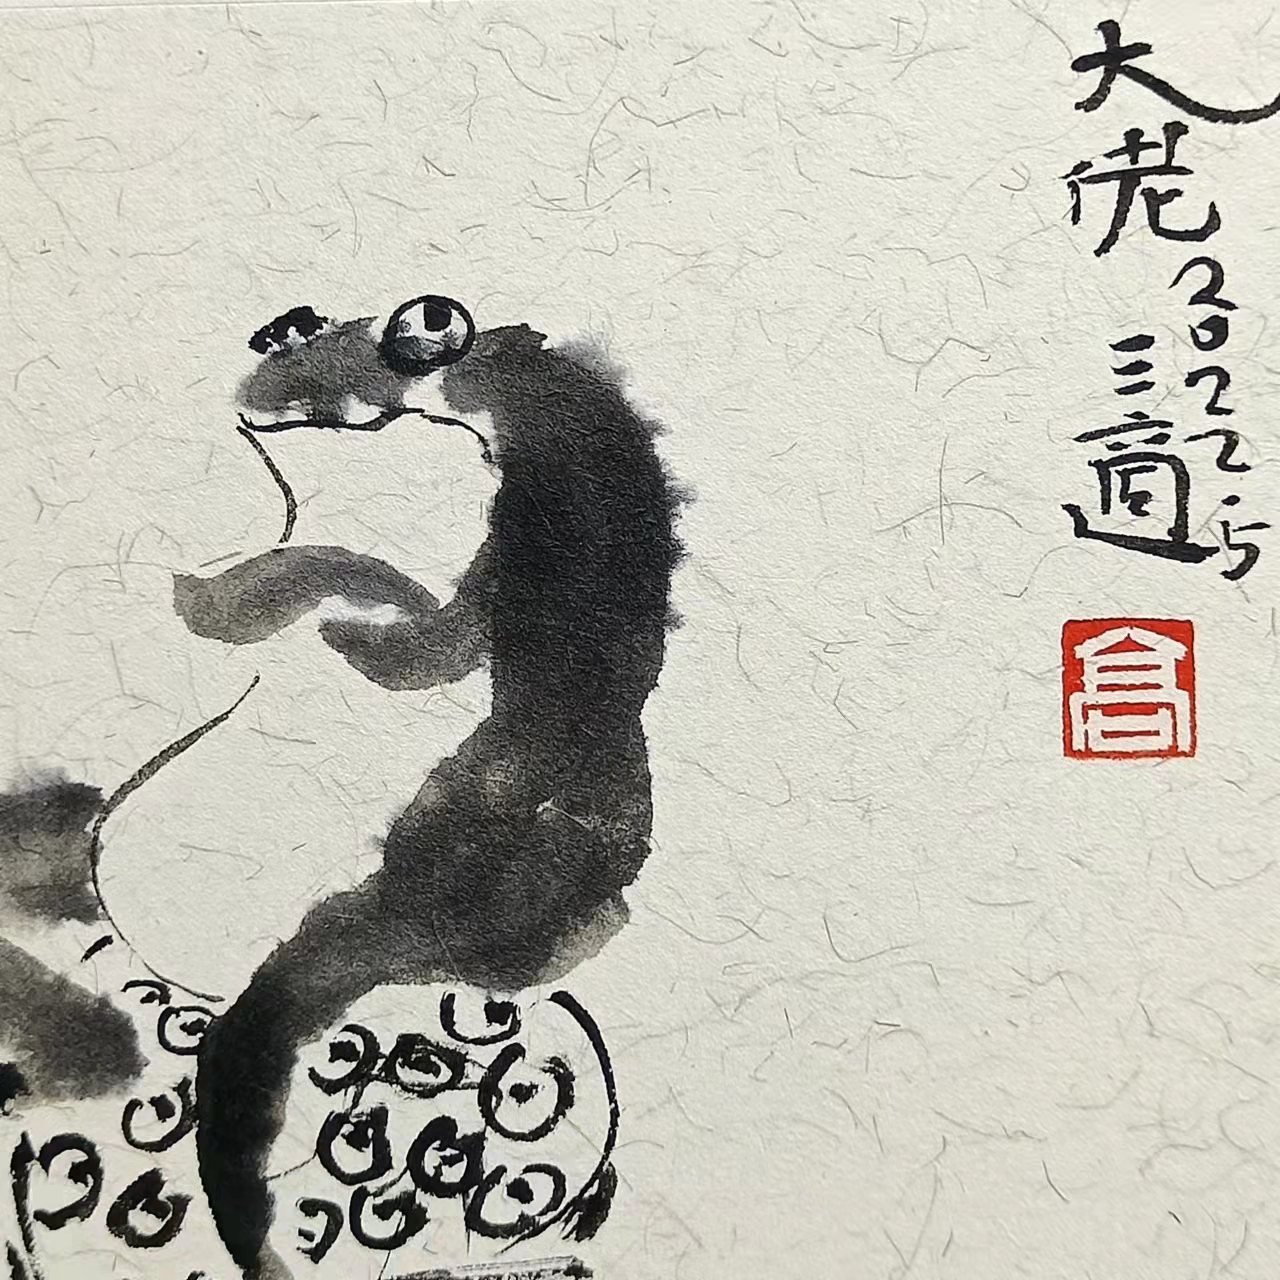 大佬
2022.5
三適
高